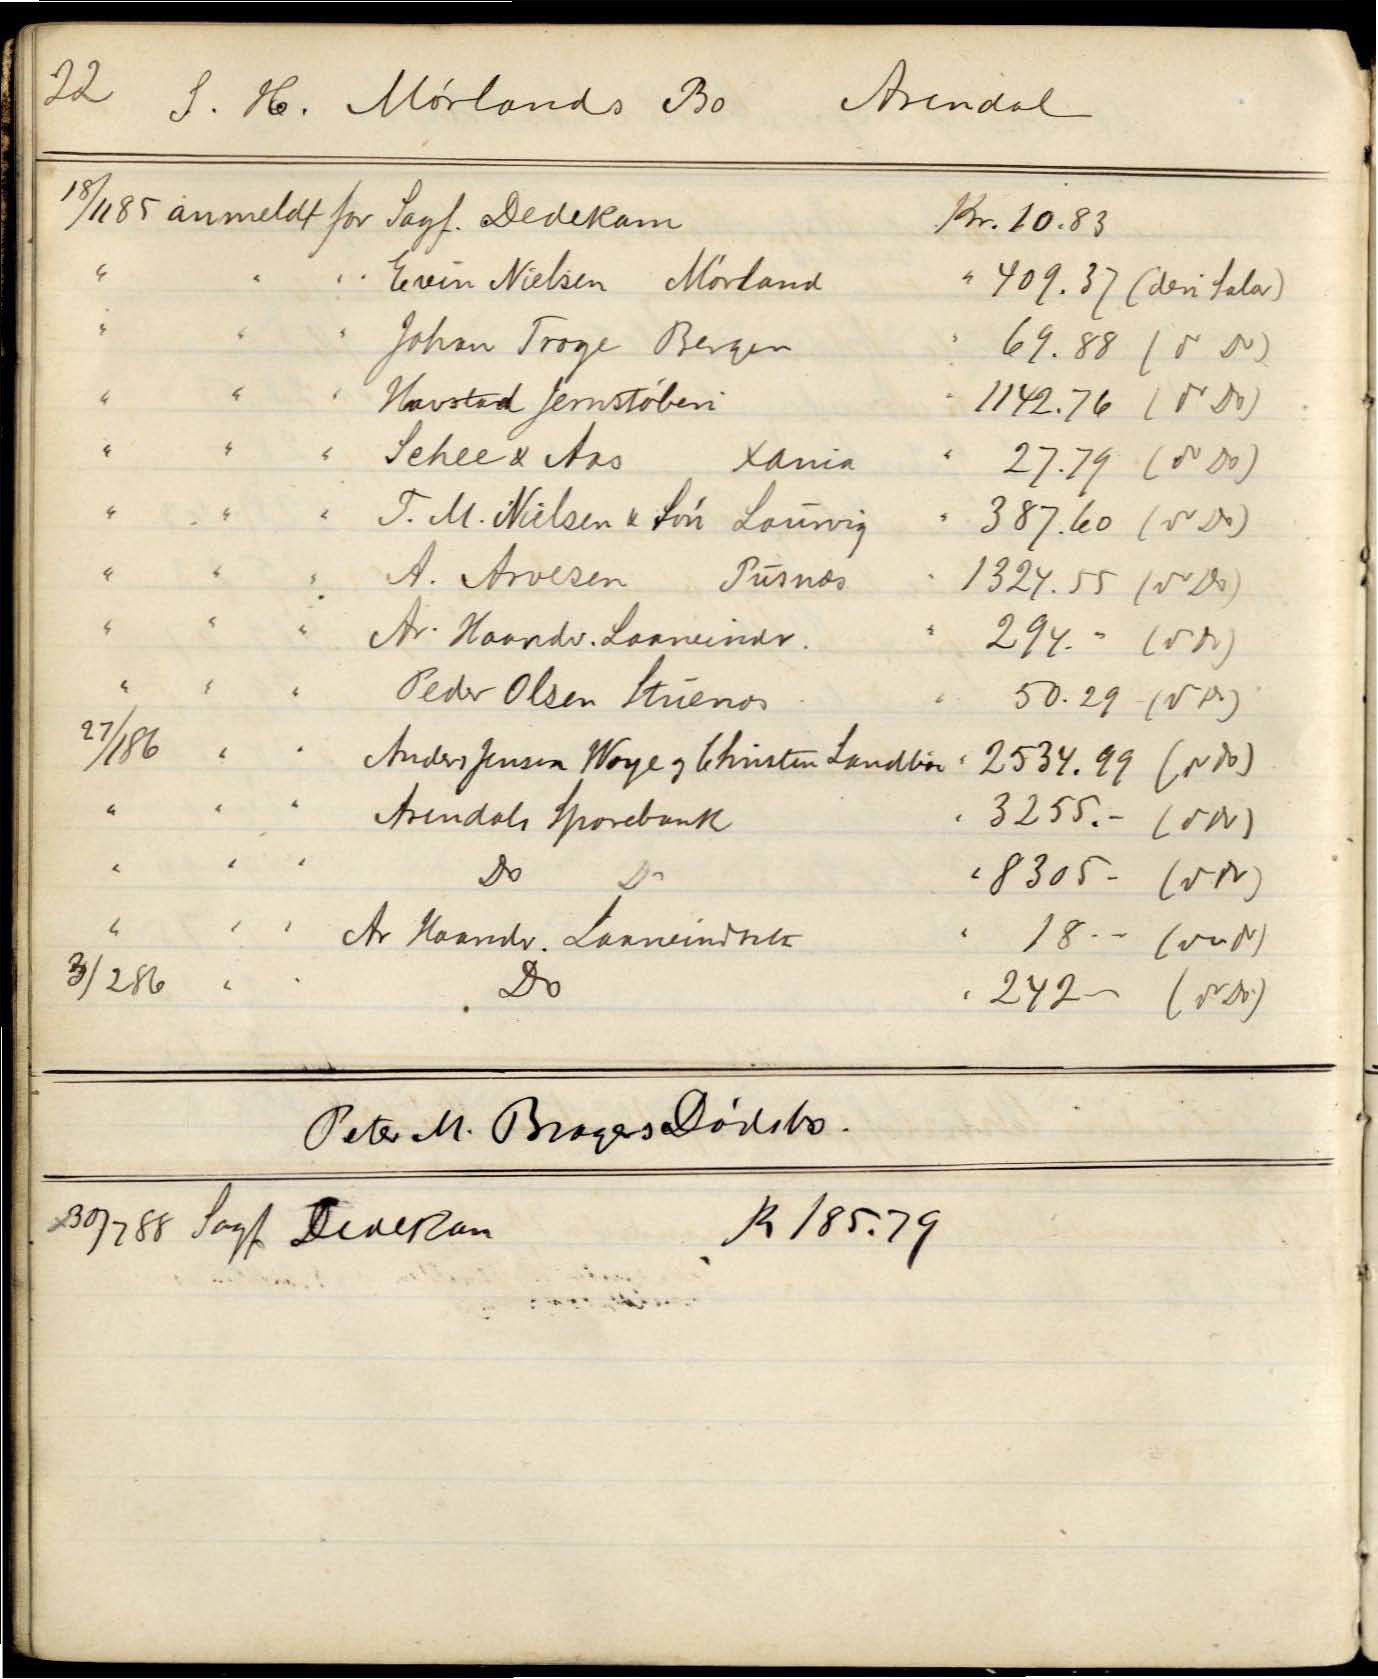 22 S. H. Mórlands Bo Arendal
18/1185 anmeldt for Sagf. Dedekam Kr. 10.83
" " " Evin Nielsen Mórland " 409.37 (deri Salær)
" " " Johan Troye Bergen " 69.88 ( Do)
" " " Havstad Jernstóberi " 1142.76 ( Do)
" " " Schee & Aas Xania " 27.79 ( Do)
" " " T. M. Nielsen & Són Laurvig " 387.60 ( Do)
" " " A. Arvesen Pusnæs " 1324.55 ( Do)
" " " Ar. Haandv. Laaneindr. " 294. " ( Do)
" " " Peder Olsen Stuenæs " 50.29 ( Do)
27/186 " " Anders Jensen Woye og Christen " 2534.99 ( Do)
" " " Arendals Sparebank " 3255.- ( Do)
" " " Do Do " 8305- ( Do)
" " " Ar Haandv. Laaneindretn " 18 -- ( Do)
3/286 " " Do " 242- ( Do)
Peter M. Bragers Dódsbo.
30/788 Sagf Dedekam K 185.79